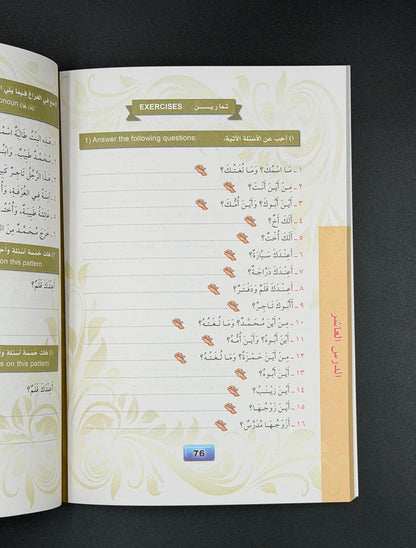 EXERCISES تماريـن
1) Answer the following questions: ١) أجب عن الأسئلة الآتية:
١ - مَا اسْمُكَ؟ وَمَا لُغَتُكَ؟
٢ - مِنْ أَيْنَ أَنْتَ؟
٣ - أَيْنَ أَبُوكَ؟ وَأَيْنَ أُمُّكَ؟
٤ - أَلَكَ أَخٌ؟
٥ - أَلَكَ أُخْتٌ؟
٦ - أَعِنْدَكَ سَيَّارَةٌ؟
٧ - أَعِنْدَكَ دَرَّاجَةٌ؟
٨ - أَعِنْدَكَ قَلَمٌ وَدَفْتَرٌ؟
٩ - أَأَبُوكَ تَاجِرٌ؟
١٠ - مِنْ أَيْنَ مُحَمَّدٌ؟ وَمَا لُغَتُهُ؟
١١ - أَيْنَ أَبُوهُ؟ وَأَيْنَ أُمُّهُ؟
١٢ - مِنْ أَيْنَ حَمْزَةُ؟ وَمَا لُغَتُهُ؟
١٣ - أَيْنَ أَبُوهُ؟
١٤ - أَيْنَ زَيْنَبُ؟
١٥ - أَيْنَ زَوْجُهَا؟
١٦ - أَزَوْجُهَا مُدَرِّسٌ؟
76
الدرس العاشر
on this pattern
أَعِنْدَكَ قَلَمٌ؟
s on this pattern
أَعِنْدَكَ قَلَمٌ؟